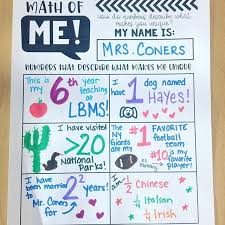 MATH OF
ME!
How do numbers describe what
makes you unique?
MY NAME IS:
MRS. CONERS
NUMBERS THAT DESCRIBE WHAT MAKES ME UNIQUE
This is
my 6th year
teaching
at LBMS!
I have 1 dog named
Hayes!
I have visited
>20
National
Parks!
The
NY
Giants
are my
#1 FAVORITE
football
team
#10 is my
favorite
player!
I have
been married
to 2² years!
Mr. Coners for
I am 1/2 Chinese
1/4 Italian
1/4 Irish